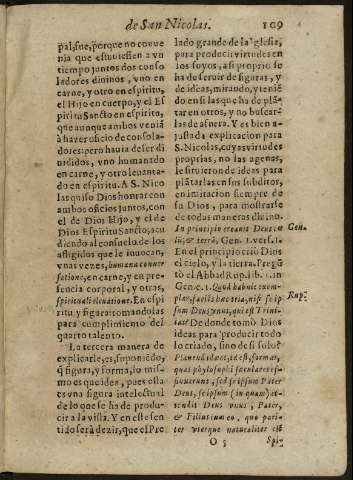 de San Nicolas. 109
pal, fue, porque no conue
nia que estuuiessen a vn
tiempo juntos dos conso
ladores diuinos, vno en
carne, y otro en espiritu,
el Hijo en cuerpo, y el Es
piritu Sancto en espiritu,
que aunque ambos veniã
à hazer oficio de consola-
dores: pero hauia de ser di
uididos, vno humanado
en carne, y otro leuanta-
do en espiritu. A S. Nico
las quiso Dios honrar con
ambos oficios juntos, con
el de Dios Hijo, y el de
Dios Espiritu Sancto, acu
diendo al consuelo de los
afligidos que le inuocan,
vnas vezes, humana conuer
satione, en carne, y en pre-
sencia corporal, y otras,
spirituali eleuatione. En espi
ritu, y figura tomandolas
para cumplimiento del
quarto talento.
La tercera manera de
explicarle, es, suponiẽdo,
q̃ figura, y forma, lo mis-
mo es que idea, pues esta
es vna figura intelectual
de lo que se ha de produ-
cir a la vista. Y en este sen-
tido será dezir, que el Pre
lado grande de la Iglesia,
para produzir virtudes en
los suyos, a si proprio se
ha de seruir de figuras, y
de ideas, mirando, y teniẽ
do en si las que ha de plã-
tar en otros, y no buscar-
las de afuera. Y es bien a-
justada explicacion para
S. Nicolas, cuyas virtudes
proprias, no las agenas,
le siruieron de ideas para
plãtarlas en sus subditos,
en imitacion siempre de
su Dios, para mostrarse
de todas maneras diuino.
In principio creauit Deus cœ Gen.
lũ, & terrã, Gen. 1. vers. 1.
En el principio criò Dios
el cielo, y la tierra. Pregũ
tò el Abbad Rup. lib. 1. in
Gen. c. 1. Quod habuit exem-
plar, facilis hæc via, nisi se ip Rup.
sum Deus vnus, qui est Trini-
tas? De donde tomò Dios
ideas para produzir todo
lo criado, sino de si solo?
Plures Ideas, id est, formas,
quas phylosophi sæculares sup
posuerunt, sed se ipsum Pater
Deus, se ipsum (in quam) at-
tendit Deus vnus, Pater,
& Filius in eo, quo pari-
ter vterque naturaliter est
O 3 Spi-